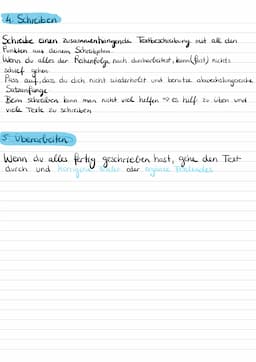 4. Schreiben
Schreibe einen zusammenhängende Textbeschreibung mit all den
Punkten aus deinem Schreibplan.
Wenn du alles der Reihenfolge nach durcharbeitest, kann (fast) nichts
schief gehen.
Pass auf, dass du dich nicht wiederholst und benutze abwechslungsreiche
Satzanfänge.
Beim Schreiben kann man nicht viel helfen → es hilft zu üben und
viele Texte zu schreiben
5. Überarbeiten
Wenn du alles fertig geschrieben hast, gehe den Text
durch und korrigiere Fehler oder ergänze Fehlendes